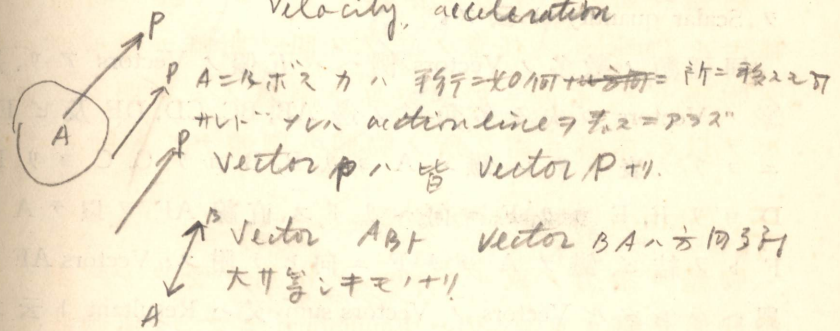 Velocity, acceleration
P
P A ニ及ボス力ハ 平行ニ如何ナル方向ニ 所ニ移スヲ可
A
P サレド ソレハ action line ヲ示スニアラズ
Vector P ハ皆 Vector P ナリ.
B Vector AB ト Vector BA ハ方向
大サ等シキモノナリ
A